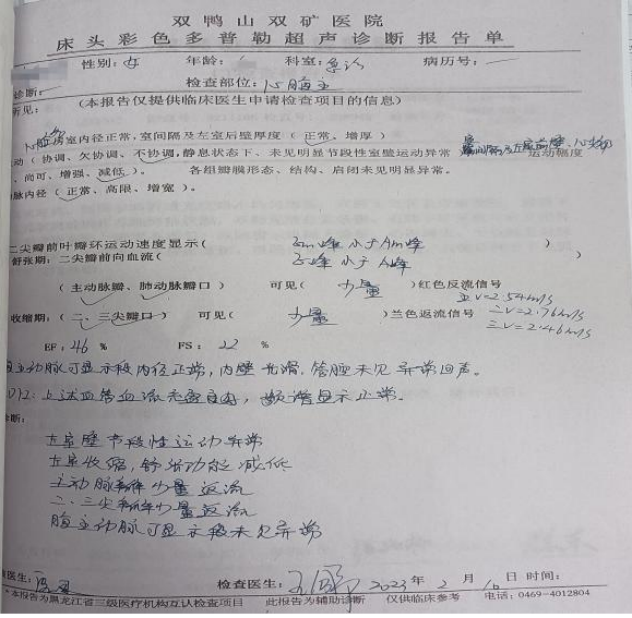 双鸭山双矿医院
床头彩色多普勒超声诊断报告单
性别:女 年龄: 科室:急诊 病历号:
诊断: 检查部位:心腹主
所见: (本报告仅提供临床医生申请检查项目的信息)
房室内径正常,室间隔及左室后壁厚度(正常、增厚)
动(协调、欠协调、不协调,静息状态下、未见明显节段性室壁运动异常 运动幅度
、尚可、增强、减低)。 各组瓣膜形态、结构、启闭未见明显异常。
脉内径(正常、高限、增宽)。
二尖瓣前叶瓣环运动速度显示( Em峰小于Am峰 )
舒张期:二尖瓣前向血流( E峰小于A峰 )
(主动脉瓣、肺动脉瓣口) 可见( 少量 )红色反流信号
V=2.54m/s
收缩期:(二、三尖瓣口) 可见( 少量 )兰色返流信号 二V=2.76m/s
三V=2.46m/s
EF:46 % FS:22 %
主动脉可显示段内径正常,内壁光滑,管腔未见异常回声。
上述血管血流充盈良好,频谱显示正常。
诊断:
左室壁节段性运动异常
左室收缩,舒张功能减低
主动脉瓣少量返流
二、三尖瓣少量返流
腹主动脉可显示段未见异常
医生: 检查医生: 2023年2月16日 时间:
*本报告为黑龙江省三级医疗机构互认检查项目 此报告为辅助诊断 仅供临床参考 电话:0469-4012804